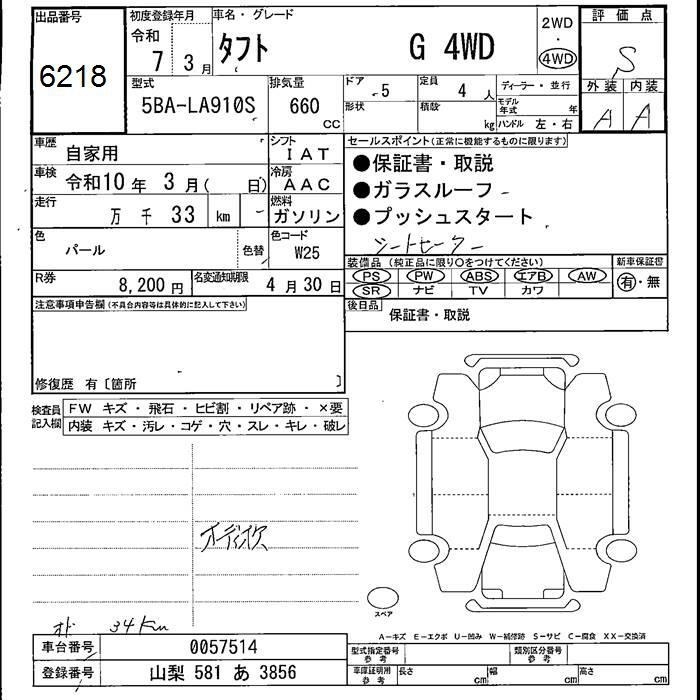 出品番号
6218
初度登録年月
令和
7 3月
車名・グレード
タフト G 4WD
2WD
・
4WD
評価点
S
外装 内装
A A
型式
5BA-LA910S
排気量
660
CC
ドア
5
形状
定員
4 人
積載
kg
ディーラー・並行
モデル年式 年
ハンドル 左・右
車歴
自家用
シフト
IAT
車検
令和10年 3月( 日)
冷房
AAC
走行
万 千 33 km
燃料
ガソリン
色
パール
色替
色コード
W25
R券
8,200円
名変通知期限
4月30日
セールスポイント(正常に機能するものに限ります)
●保証書・取説
●ガラスルーフ
●プッシュスタート
シートヒーター
装備品(純正品に限り○をつけてください)
PS PW ABS エアB AW
SR ナビ TV カワ
新車保証書
有・無
後日品
保証書・取説
注意事項申告欄(不具合内容等は具体的に記入して下さい)
修復歴 有〔箇所 〕
検査員記入欄
FW キズ・飛石・ヒビ割・リペア跡・×要
内装 キズ・汚レ・コゲ・穴・スレ・キレ・破レ
オーディオ欠
オド 34Km
スペア
A-キズ E-エクボ U-凹み W-補修跡 S-サビ C-腐食 XX-交換済
車台番号
0057514
登録番号
山梨 581 あ 3856
型式指定番号
参考
類別区分番号
参考
車庫証明用
参考
長さ cm
幅 cm
高さ cm